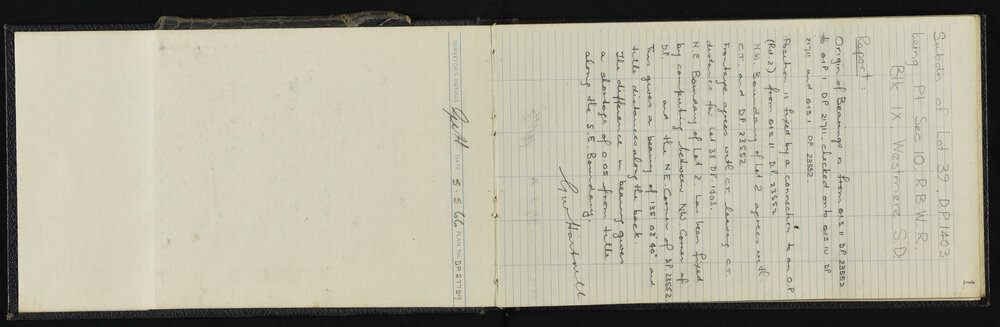 1
Subdn of Lot 39, DP 1403
being Pt Sec 10, R.B.W.R.
Blk IX, Westmere S.D.
Report:
Origin of Bearings is from OIS II DP 23552
to OIP I DP 21711, checked onto OIS IV DP
21711 and OIS I DP 23552.
Position is fixed by a connection to an O.P.
(Rd. 2) from OIS II D.P. 23552
N.W. Boundary of Lot 2 agrees with
C.T. and D.P. 23552
Frontage agrees with C.T. leaving C.T.
distance for Lot 38 DP. 1403.
N.E Boundary of Lot 2 has been fixed
by computing between NW Corner of
D.P. and the N.E Corner of DP 23552
This gives a bearing of 135° 03' 40" and
title distances along the back.
The difference in bearing gives
a shortage of 0.05 from title
along the S.E. Boundary.
SURVEYORS INITIALS DATE 5 5 66 PLAN No. DP 27759